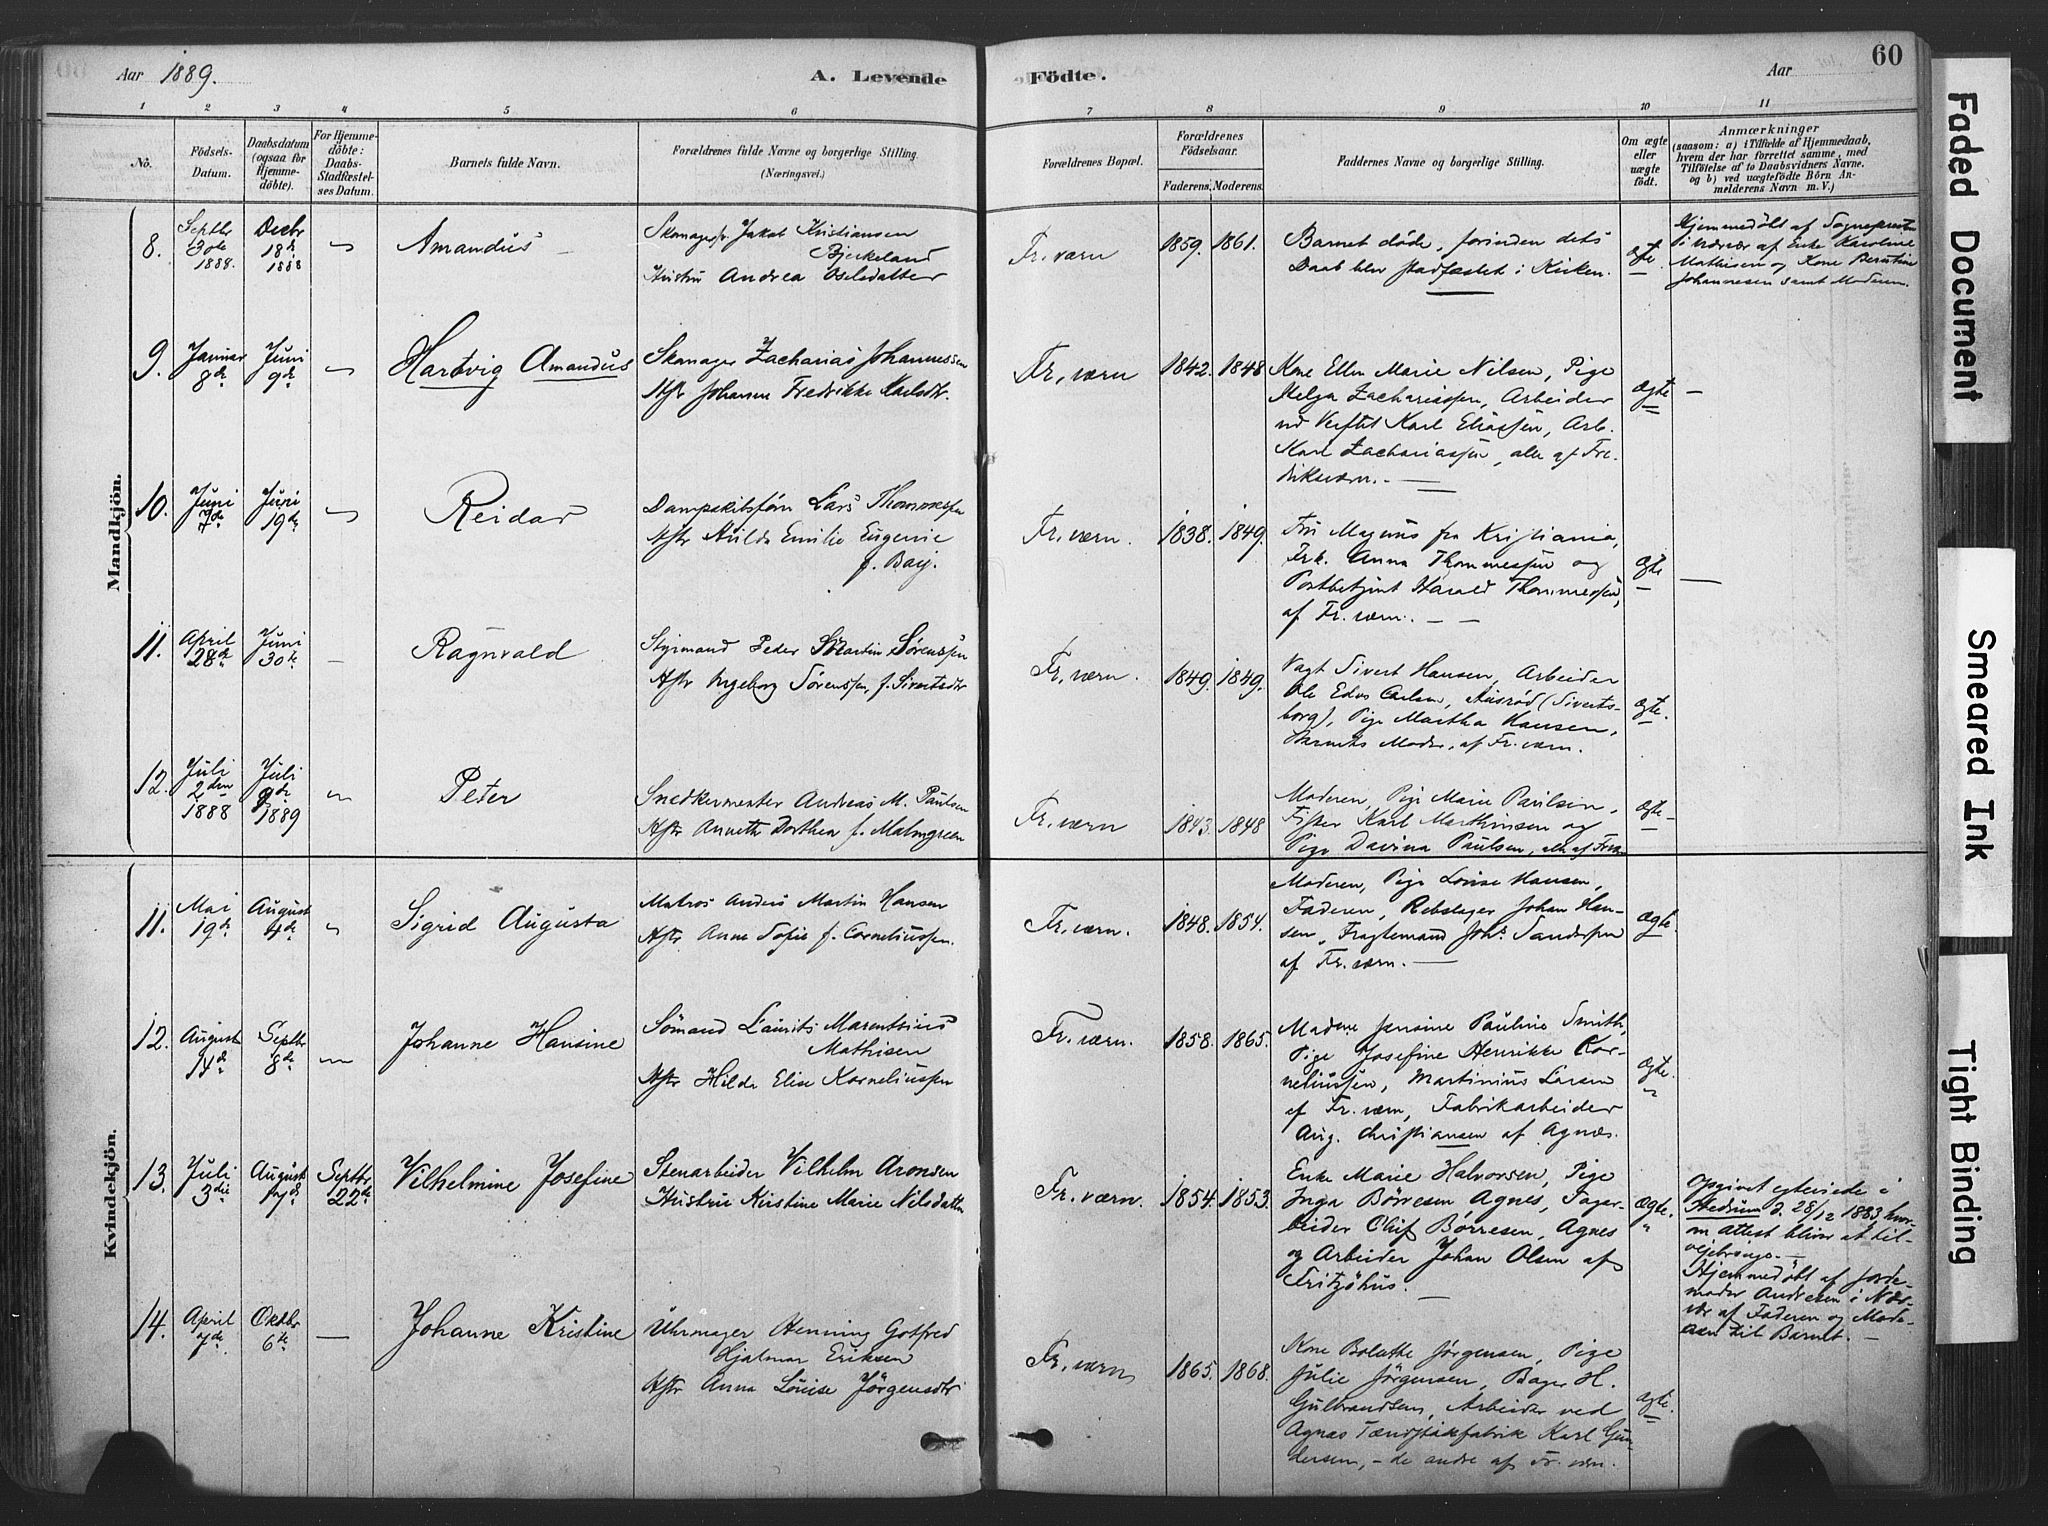 Aar 1889.
A. Levende
Födte.
Aar
60
1 2 3 4 5 6 7 8 9 10 11
No.
Födsels-
Datum.
Daabsdatum
(ogsaa for
Hjemme-
döbte).
For Hjemme-
döbte:
Daabs-
Stadfæstel-
ses Datum.
Barnets fulde Navn.
Forældrenes fulde Navne og borgerlige Stilling.
(Næringsvei.)
Forældrenes Bopæl.
Forældrenes
Födselsaar.
Faderens. Moderens.
Faddernes Navne og borgerlige Stilling.
Om ægte
eller
uægte
födt.
Anmærkninger
(saasom: a) i Tilfælde af Hjemmedaab,
hvem der har forrettet samme, med
Tilföielse af to Daabsvidners Navne.
og b) ved uægtefödte Börn An-
melderens Navn m. V.)
Mandkjön.
8.
Septbr
30te
1888.
Decbr
18de
1888
Amandus
Jakob Kristiansen
Bjerkeland
Hustru Andrea Oselsdatter
Fr.værn
1859. 1861.
Barnet døde, forinden dets
Daab blev stadfæstet i Kirken.
ægte.
Hjemmedøbt af Sognepresten
i Nærvær af Enke Karoline
Mathisen og Kone Berntine
Johannesen samt Moderen.
9.
Januar
8de
Juni
9de
Hartvig Amandus
Skomager Zacharias Johannessen
Hstr Johanne Fredrikke Karlsdtr.
Fr.værn
1842. 1848
Kone Ellen Marie Nilsen, Pige
Helga Zachariassen, Arbeider
ved Verftet Karl Eliassen, Arb.
Karl Zachariassen, alle af Fre-
driksværn. -
ægte
10.
Juni
7de
Juni
19de
Reidar
Dampskibsförer Lars Thommessen
Hstr Hulda Emilie Eugenie
f. Baij.
Fr.værn.
1838. 1849.
Fru Magnus fra Kristiania,
Frk. Anna Thommessen og
Postbetjent Harald Thommessen,
af Fr.værn. -
ægte
11.
April
28de
Juni
30te
Ragnvald
Styrmand Peder Martin Sørenssen
Hstr Ingeborg Sørenssen, f. Sivertsdtr
Fr.værn.
1849. 1849.
Vagt Sivert Hansen, Arbeider
Ole Edvs Carlsen, (Siverts-
borg), Pige Martha Hansen,
Barnets Moder, af Fr.værn.
ægte.
12.
Juli
2den
1888
Juli
9de
1889
Peter
Snedkermester Andreas M. Paulsen
Hstr Annette Dorthea f. Malmgreen
Fr.værn
1843. 1848
Moderen, Pige Marie Paulsen,
Fisker Karl Marthinsen og
Pige Davina Paulsen, alle af Frværn
ægte.
Kvindekjön.
11.
Mai
19de
August
4de
Sigrid Augusta
Matros Anders Martin Hansen
Hstr Anne Sofie f. Corneliussen.
Fr.værn.
1848. 1854.
Moderen, Pige Lovise Hansen,
Faderen, Rebslager Johan Han-
sen, Fragtemand Johs Sanderssen
af Fr.værn. -
ægte.
12.
August
14de
Septbr
8de
Johanne Hansine
Sömand Laurits Marentsius
Mathisen
Hstr Hilda Elise Korneliussen
Fr.værn.
1858. 1865.
Madame Jensine Pauline Smith,
Pige Josefine Henrikke Kor-
neliussen, Martinius Larsen
af Fr.værn, Fabrikarbeider
Aug. Christiansen af Agnæs.
ægte.
13.
Juli
3die
August
7de
Septbr
22de
Vilhelmine Josefine
Stenarbeider Vilhelm Aronsen
Hustru Kristine Marie Nilsdatter
Fr.værn.
1854. 1853.
Enke Marie Halvorsen, Pige
Inga Börresen Agnes, Sagar-
beider Oluf Börresen, Agnes
og Arbeider Johan Olsen af
Fritzöhus.
ægte.
Opgivet egteviede i
Hedrum d. 28/12 1883 hvor-
om attest bliver at til-
vejebringe. -
Hjemmedöbt af Jorde-
moder Andresen i Nær-
vær af Faderen og Mode-
ren til Barnet. -
14.
April
7de.
Oktbr
6te
Johanne Kristine
Uhrmager Henning Gotfred
Hjalmar Eriksen
Hstr Anna Lovise Jörgensdtr
Fr.værn
1865. 1868.
Kone Bolette Jörgensen, Pige
Julie Jörgensen, Bager H.
Gulbrandsen, Arbeider ved
Agnæs Tændstikfabrik Karl Gun-
dersen, - de andre af Fr.værn.
ægte.
Faded Document
Smeared Ink
Tight Binding